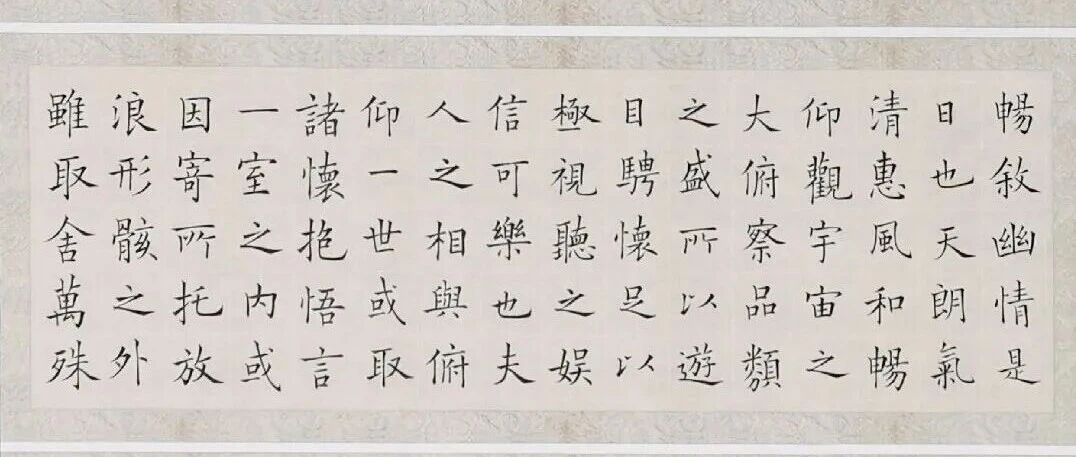 暢敘幽情是
日也天朗氣
清惠風和暢
仰觀宇宙之
大俯察品類
之盛所以遊
目騁懷足以
極視聽之娱
信可樂也夫
人之相與俯
仰一世或取
諸懷抱悟言
一室之内或
因寄所托放
浪形骸之外
雖取舍萬殊